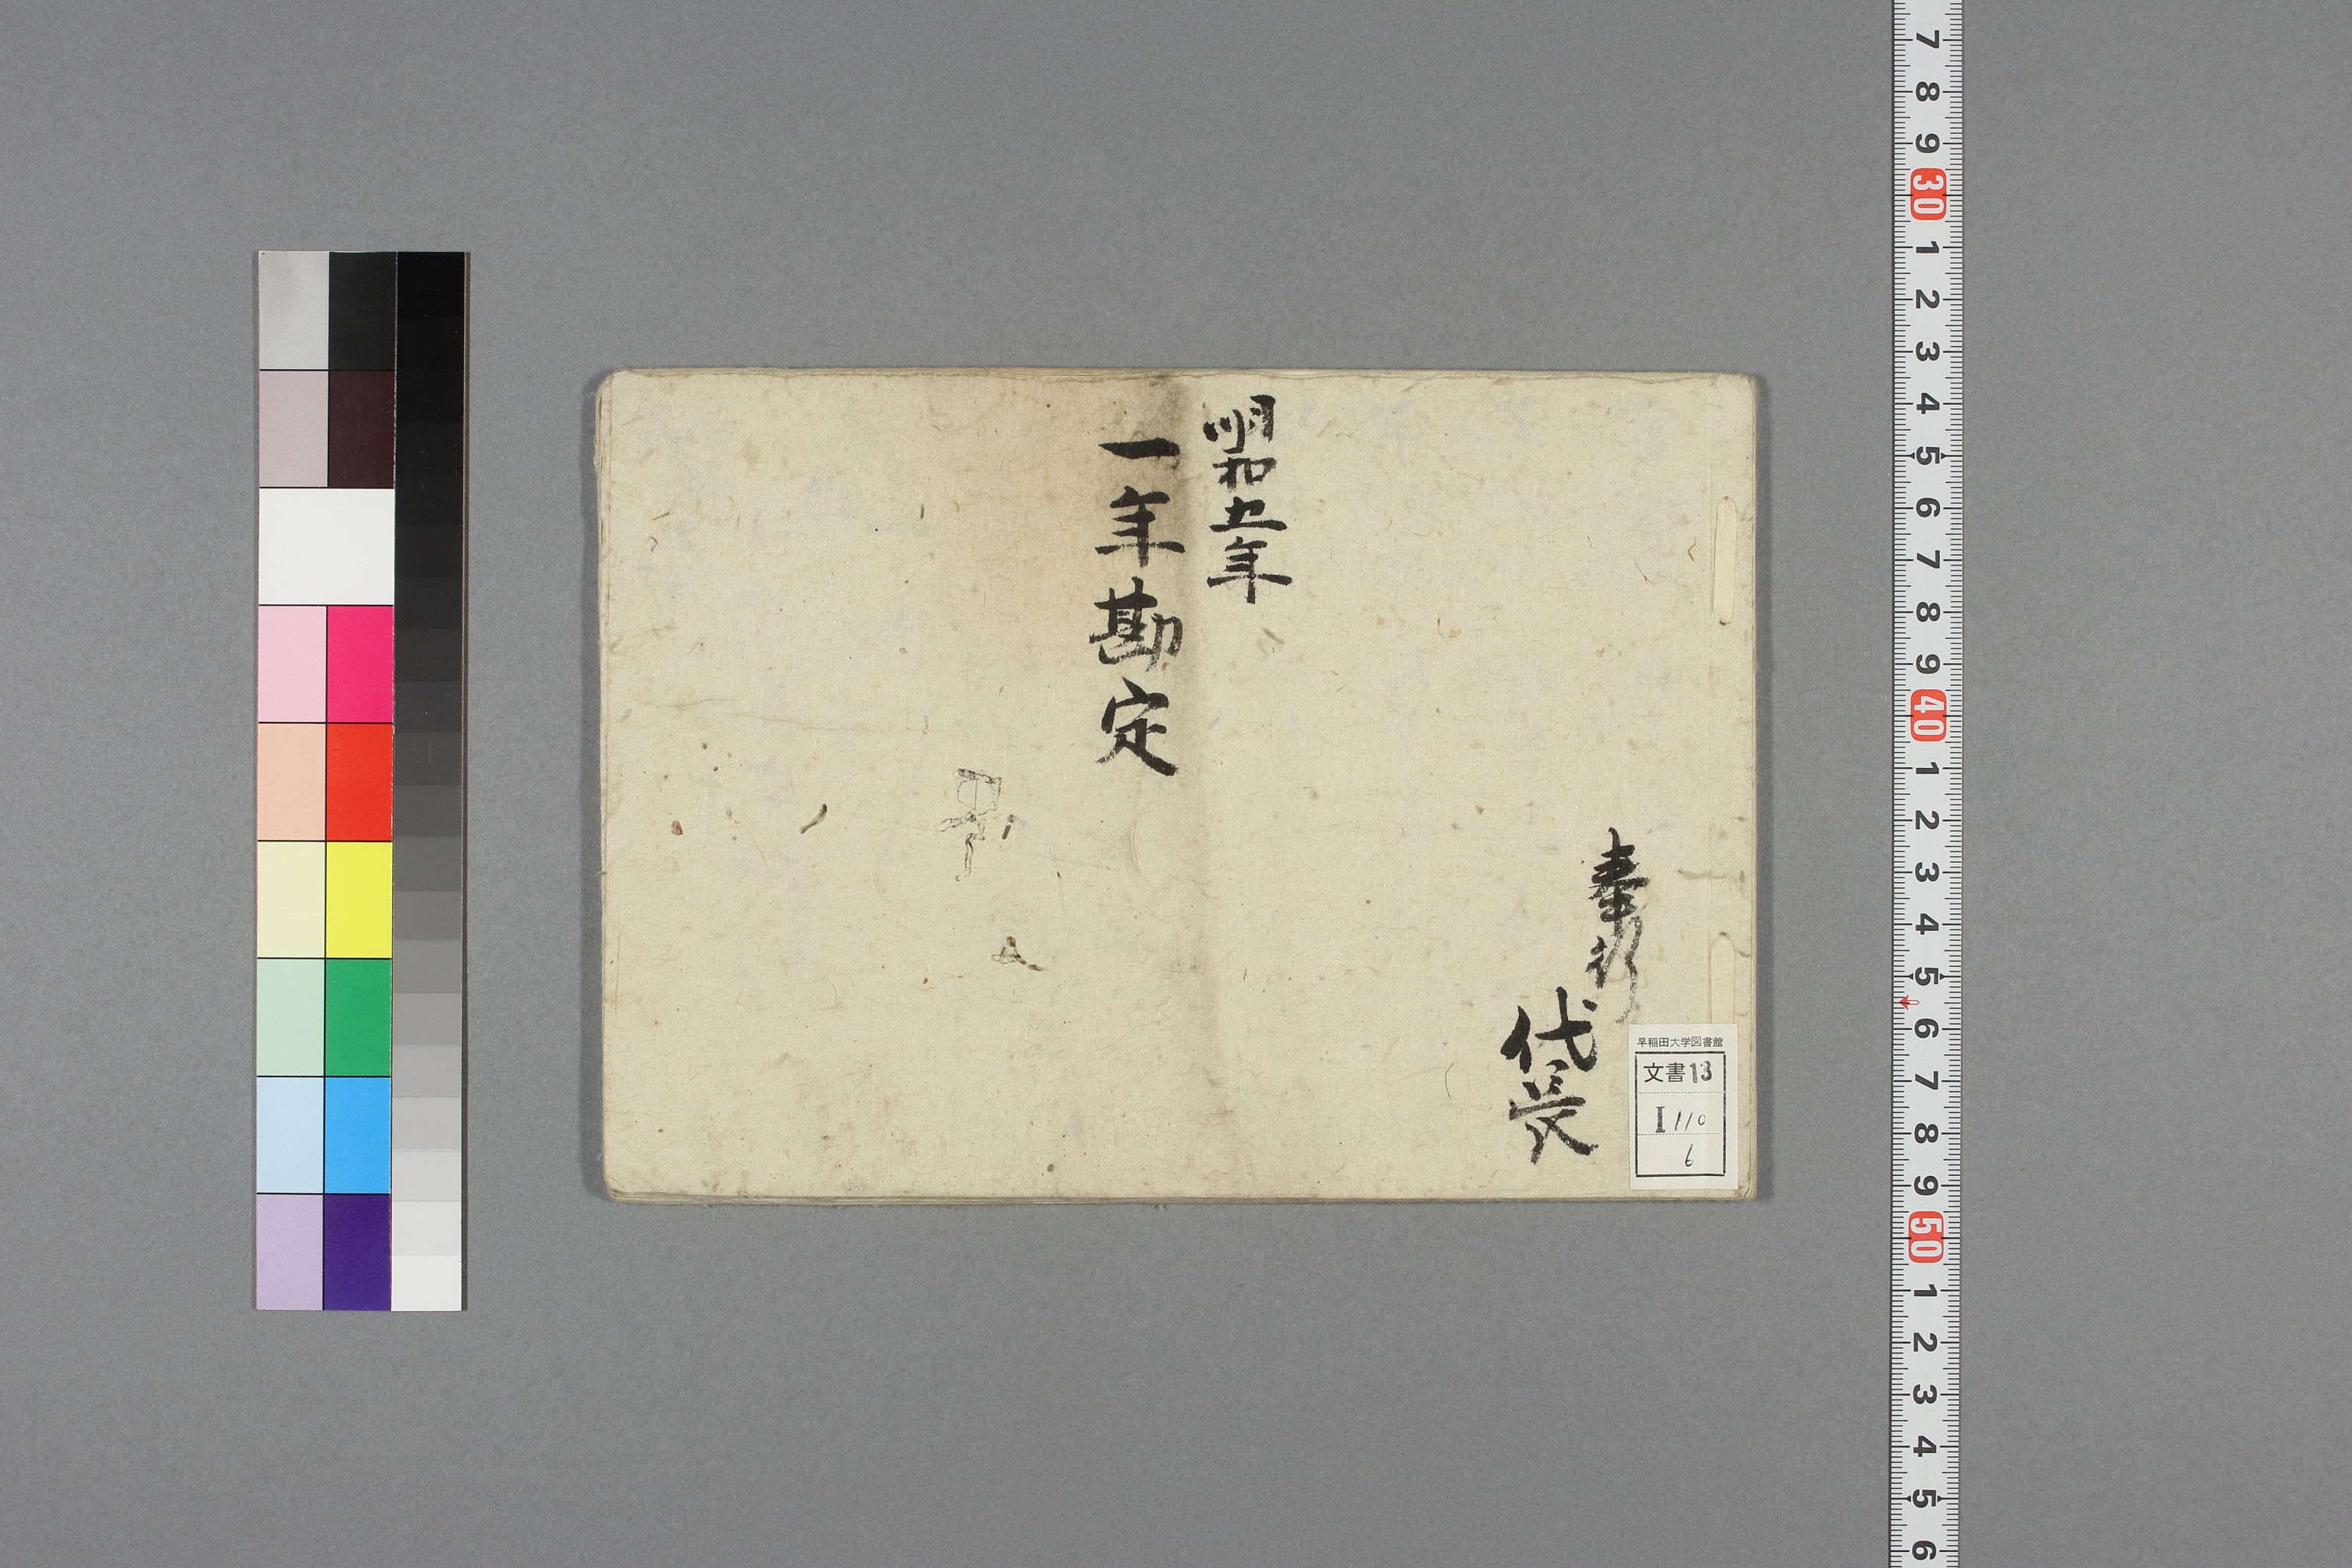 明和五年
一年勘定
奉行
代
早稲田大学図書館
文書13
I 110
6
7
8
9
30
1
2
3
4
5
6
7
8
9
40
1
2
3
4
5
6
7
8
9
50
1
2
3
4
5
6